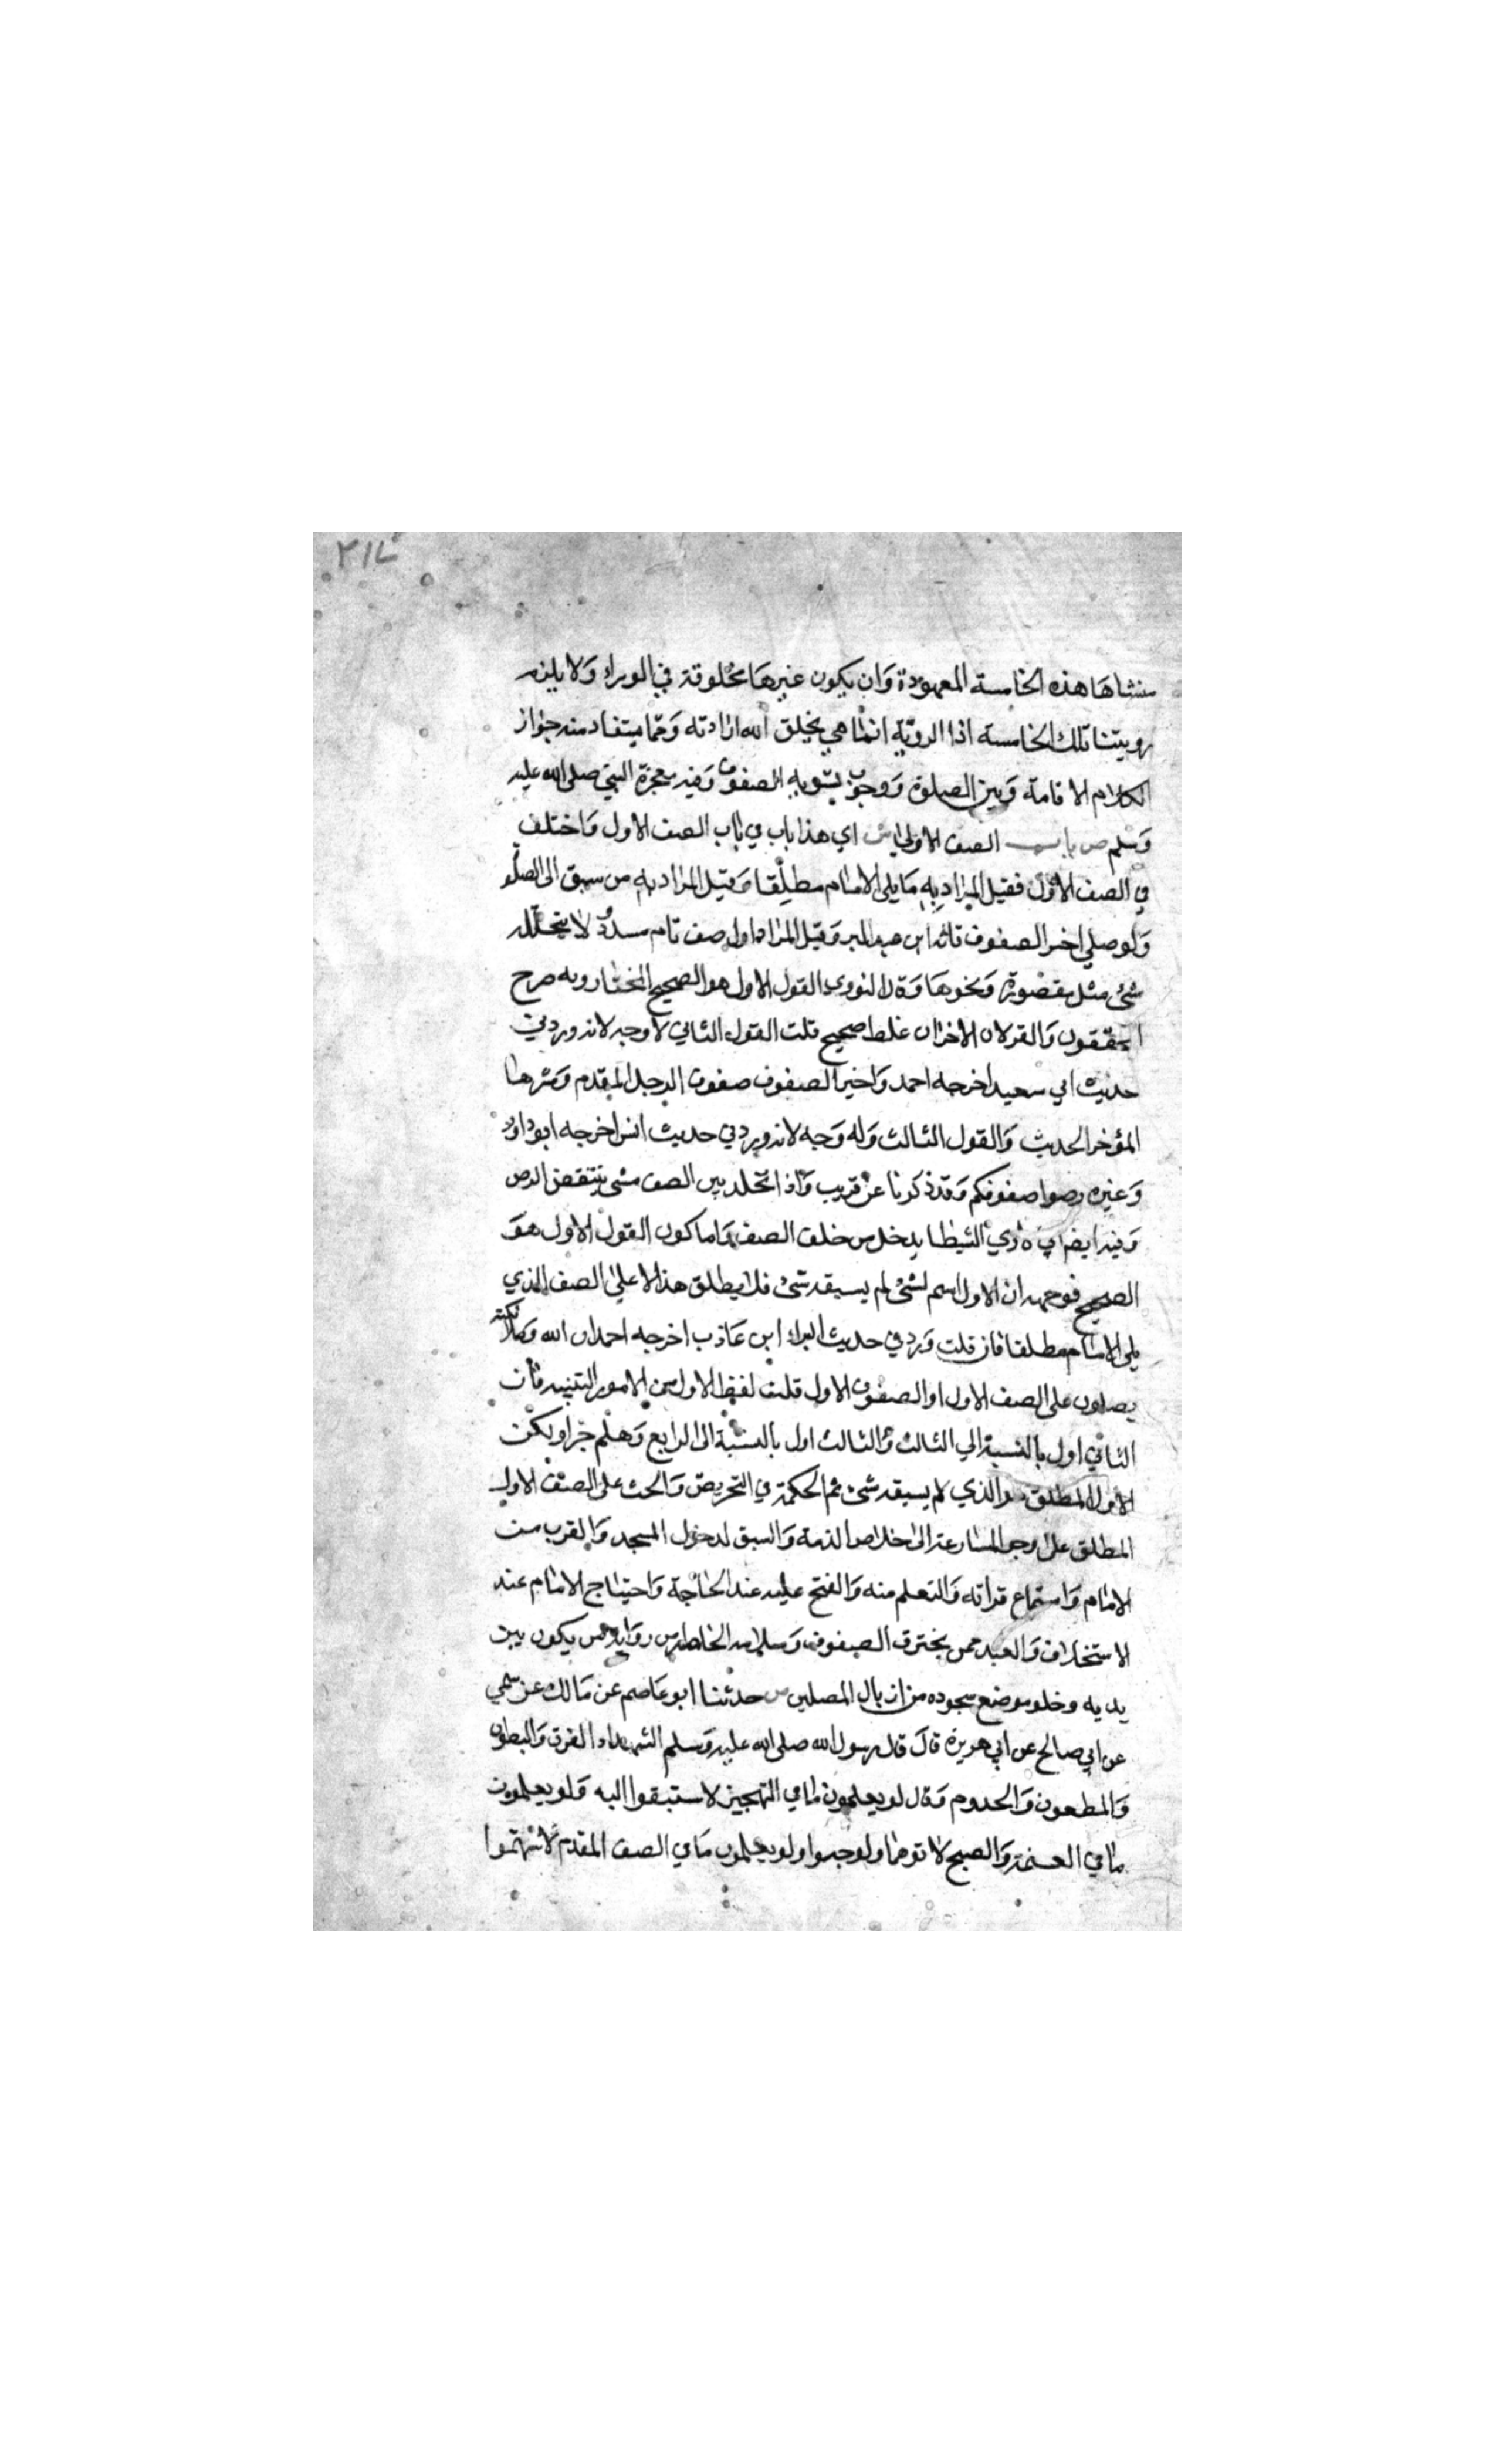 ٢١٢
منشاها هذه الخامسة المعهودة وان يكون غيرها مخلوقة في الوراء ولا يلزم
رويتنا تلك الخامسة اذا الروية انما هي بخلق الله ارادته ومما يستفاد منه جواز
الكلام الاقامة وبين الصلوة ووجوب تسوية الصفوف وفيه معجزة النبي صلى الله عليه
وسلم ص باب الصف الاول ش اي هذا باب في باب الصف الاول واختلف
في الصف الاول فقيل المراد به ما يلي الامام مطلقا وقيل المراد به من سبق الى الصلو
ولو صلي اخر الصفوف قاله ابن عبد البر وقيل المراد اول صف تام مسدود لا يتخلله
شئ مثل مقصورة ونحوها وقال النووي القول الاول هو الصحيح المختار وبه صرح
المحققون والقولان الاخران غلط صحيح قلت القول الثاني لا وجه لانه ورد في
حديث ابي سعيد اخرجه احمد واخير الصفوف صفوف الرجل المقدم وشرها
المؤخر الحديث والقول الثالث وله وجه لانه ورد في حديث انس اخرجه ابو داود
وغيره رصوا صفوفكم وقد ذكرنا عن قريب واذا تخلل بين الصف شي ينتقض الرص
وفيه ايضا اني اري الشيطا يدخل من خلف الصف واما كون القول الاول هو
الصحيح فوجهه ان الاول اسم لشئ لم يسبقه شئ فلا يطلق هذا الا علي الصف الذي
يلي الامام مطلقا فان قلت ورد في حديث البراء ابن عاذب اخرجه احمد ان الله وملائكته
يصلون على الصف الاول او الصفوف الاول قلت لفظ الاول من الامور النسبية فان
الثاني اول بالنسبة الي الثالث والثالث اول بالنسبة الى الرابع وهلم جرا ولكن
الاول المطلق هو الذي لم يسبقه شئ ثم الحكمة في التحريض والحث على الصف الاول
المطلق على وجه المسارعة الى خلاص الذمة والسبق لدخول المسجد والقرب من
الامام واستماع قراته والتعلم منه والفتح عليه عند الحاجة واحتياج الامام عند
الاستخلاف والعبد ممن يخترق الصفوف وسلامه الخاطر من رواية من يكون بين
يديه وخلو موضع سجوده من اذيال المصلين ص حدثنا ابو عاصم عن مالك عن سمي
عن ابي صالح عن ابي هريرة قال قال رسول الله صلى الله عليه وسلم الشهداء الغرق والبطون
والمطعون والحدوم وقال لو يعلمون ما في التهجير لاستبقوا اليه ولو يعلمون
ما في العتمة والصبح لاتوهما ولو حبوا ولو يعلمون ما في الصف المقدم لاستهموا